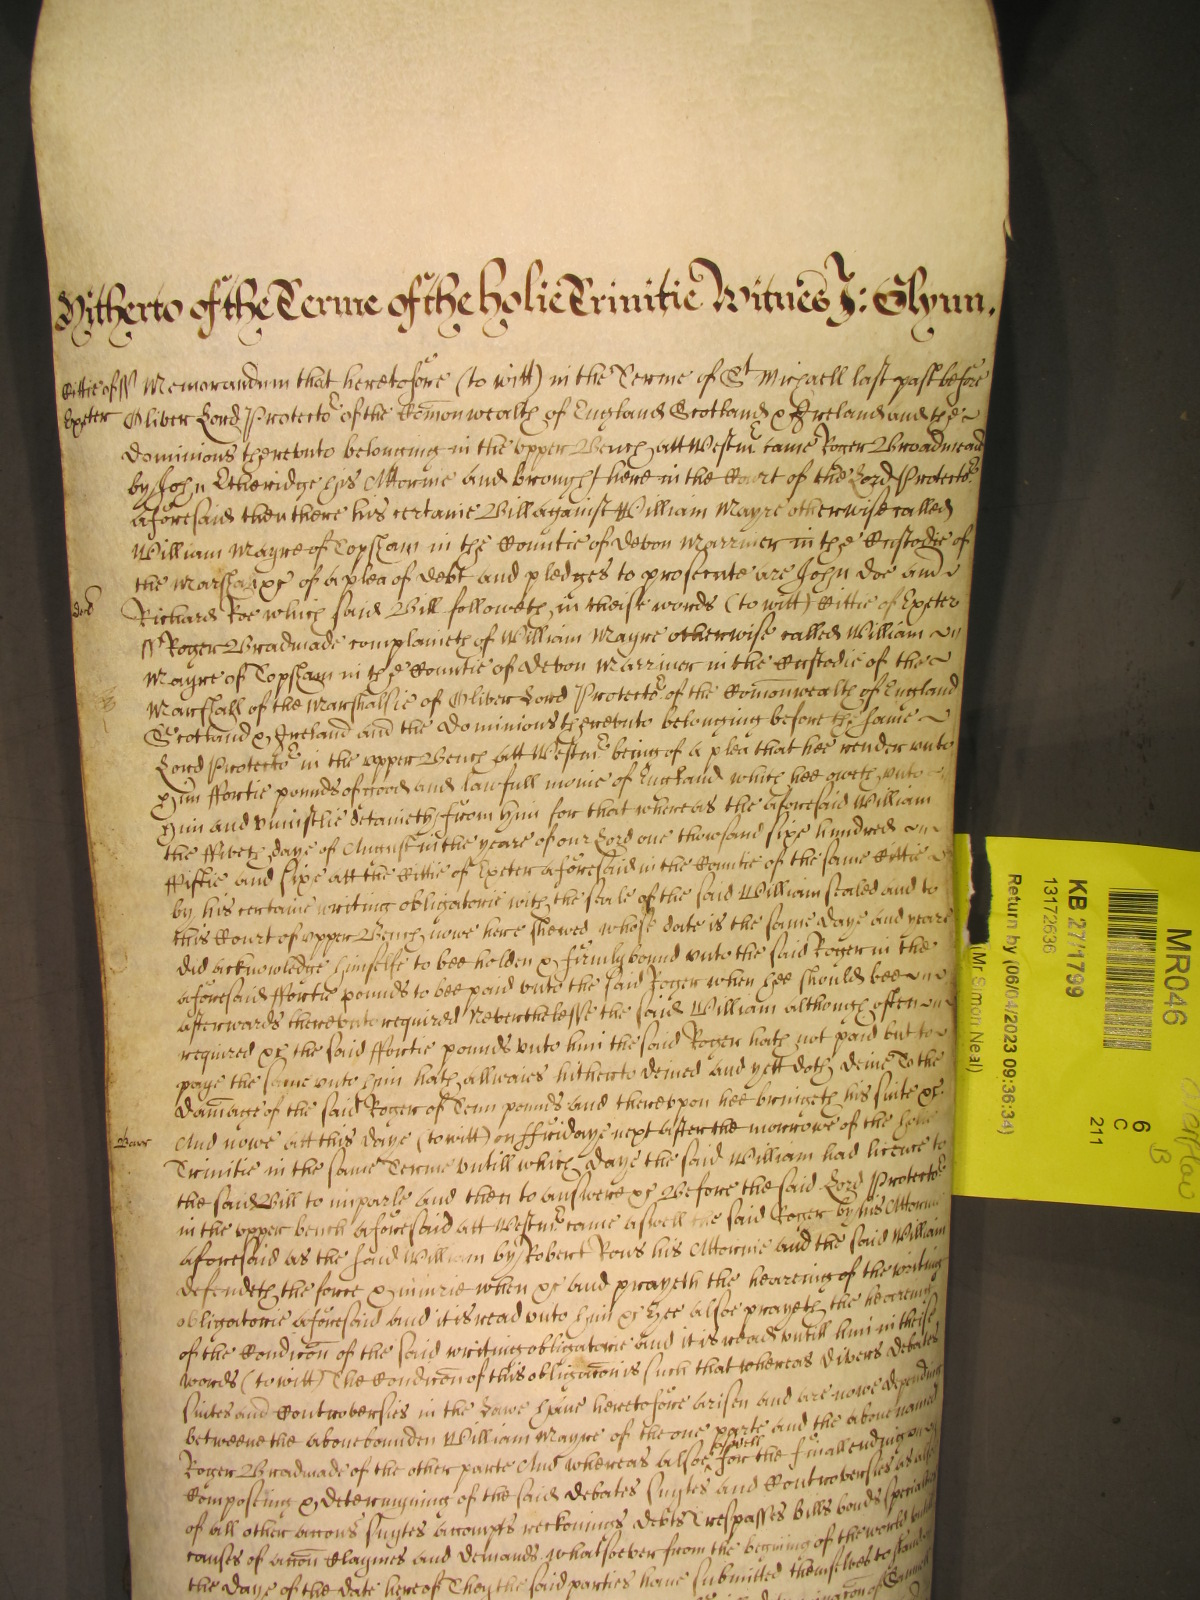 Hitherto of the Terme of the holie Trinitie Witnes J: Glynn.
Cittie of ss Memorandum that heretofore (to witt) in the Terme of St Michaell last past before
Exeter Oliver Lord Protector of the Comonwealth of England Scotland & Ireland and the
dominions thereunto belonging in the upper Bench att Westmr came Roger Broadmeade
by John Etheridge his Attornie and brought here in the Court of the Lord Protector
aforesaid then there his certaine Bill against William Mayre otherwise called
William Mayre of Topsham in the Countie of Devon Marriner in the Custodie of
the Marshall &c of a plea of debt and pledges to prosecute are John Doe and
debt Richard Roe which said Bill followeth in theise words (to witt) Cittie of Exeter
ss Roger Bradmade complaineth of William Mayre otherwise called William
Mayre of Topsham in the Countie of Devon Marriner in the Custodie of the
Marshall of the Marshalsie of Oliver Lord Protector of the Comonwealth of England
Scotland & Ireland and the dominions thereunto belonging before the same
Lord Protector in the upper Bench att Westmr being of a plea that hee render unto
him ffortie pounds of good and lawfull monie of England which hee oweth unto
him and uniustlie detaineth from him for that whereas the aforesaid William
the ffiveth daye of August in the yeare of our Lord one thowsand sixe hundred
ffiftie and sixe att the Cittie of Exeter aforesaid in the Countie of the same Cittie
by his certaine writing obligatorie with the seale of the said William sealed and to
this Court of upper Bench nowe here shewed whose date is the same daye and yeare
did acknowledge himselfe to bee holden & firmly bound unto the said Roger in the
aforesaid ffortie pounds to bee paid unto the said Roger when hee should bee
afterwards thereunto required Neverthelesse the said William although often
required &c the said ffortie pounds unto him the said Roger hath not paid but to
paye the same unto him hath allwaies hitherto denied and yett doth denie To the
damage of the said Roger of Tenn pounds and thereupon hee bringeth his suite &c
And nowe att this daye (to witt) on ffridaye next after the morrowe of the holie
Trinitie in the same Terme untill which daye the said William had licence to
the said Bill to imparle and then to answere &c Before the said Lord Protector
in the upper bench aforesaid att Westmr came aswell the said Roger by his Attornie
aforesaid as the said William by Robert Rous his Attornie And the said William
defendeth the force & iniurie when &c and prayeth the heareing of the writing
obligatorie aforesaid and it is read unto him &c Hee alsoe prayeth the heareing
of the Condicon of the said writing obligatorie and it is read untill him in theise
words (to witt) The Condicon of this obligacon is such that whereas divers debates
suites and Controversies in the Lawe have heretofore arisen and are nowe depending
betweene the abovebounden William Mayre of the one parte and the abovenamed
Roger Bradmade of the other parte And whereas alsoe aswell for the finall ending
Composeing & determyning of the said debates suytes and Controversies as alsoe
of all other accons suytes accompts reckonings debts Trespasses bills bonds specialties
causes of accon Claymes and demands whatsoever from the begining of the world untill
the daye of the date hereof They the said parties have submitted themselves to stand
MR046
6
C
211
KB 27/1799
13172636
Return by (06/04/2023 09:36:34)
(Mr Simon Neal)